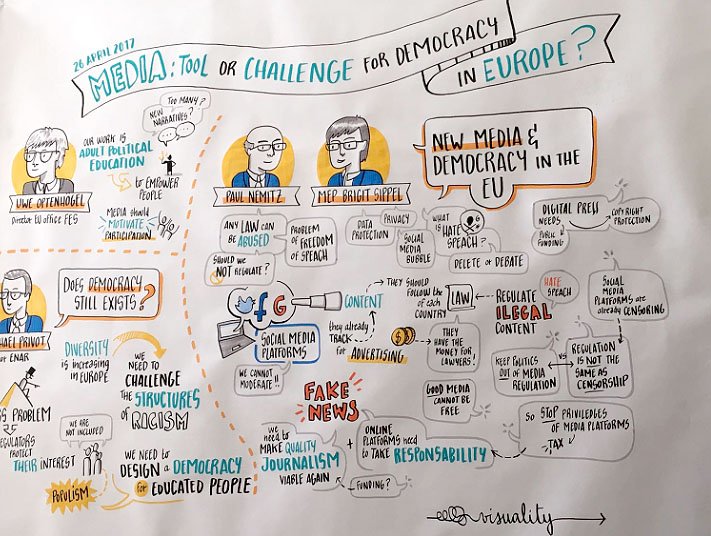 26 APRIL 2017
MEDIA: TOOL OR CHALLENGE FOR DEMOCRACY
IN EUROPE?
TOO MANY?
NEW
NARRATIVES?
OUR WORK IS
ADULT POLITICAL
EDUCATION
TO EMPOWER
PEOPLE
UWE OPTENHOGEL
Director EU OFFICE FES
MEDIA should
MOTIVATE
PARTICIPATION
DOES DEMOCRACY
STILL EXISTS?
HAEL PRIVOT
OF ENAR
DIVERSITY
is INCREASING
in EUROPE
WE
NEED TO
CHALLENGE
THE STRUCTURES
OF RACISM
PROBLEM
REGULATORS
PROTECT
THEIR INTEREST
WE ARE
NOT INCLUDED
POPULISM
WE NEED TO
DESIGN a DEMOCRACY
for EDUCATED PEOPLE
PAUL NEMITZ
MEP BRIGIT SIPPEL
NEW MEDIA &
DEMOCRACY IN THE
EU
ANY LAW CAN
BE ABUSED
PROBLEM
OF FREEDOM
OF SPEACH
SHOULD WE
NOT REGULATE?
DATA
PROTECTION
PRIVACY
SOCIAL
MEDIA
BUBBLE
WHAT
IS HATE
SPEACH?
DELETE OR DEBATE
DIGITAL PRESS
NEEDS
PUBLIC
FUNDING
COPYRIGHT
PROTECTION
f G
SOCIAL MEDIA
PLATFORMS
WE CANNOT
MODERATE!!
CONTENT
they already
TRACK
for ADVERTISING
THEY SHOULD
FOLLOW the
of each
COUNTRY
LAW
THEY
HAVE THE
MONEY FOR
LAWYERS!
GOOD MEDIA
CANNOT BE
FREE
REGULATE
ILEGAL
CONTENT
HATE
SPEACH
SOCIAL
MEDIA
PLATFORMS are
already CENSORING
KEEP POLITICS
OUT OF MEDIA
REGULATION
VS
REGULATION
IS NOT THE
SAME AS
CENSORSHIP
SO STOP PRIVILEDGES
OF MEDIA PLATFORMS
TAX
FAKE
NEWS
we
need to
MAKE QUALITY
JOURNALISM
VIABLE AGAIN
+
ONLINE
PLATFORMS need
to TAKE RESPONSABILITY
FUNDING?
visuality